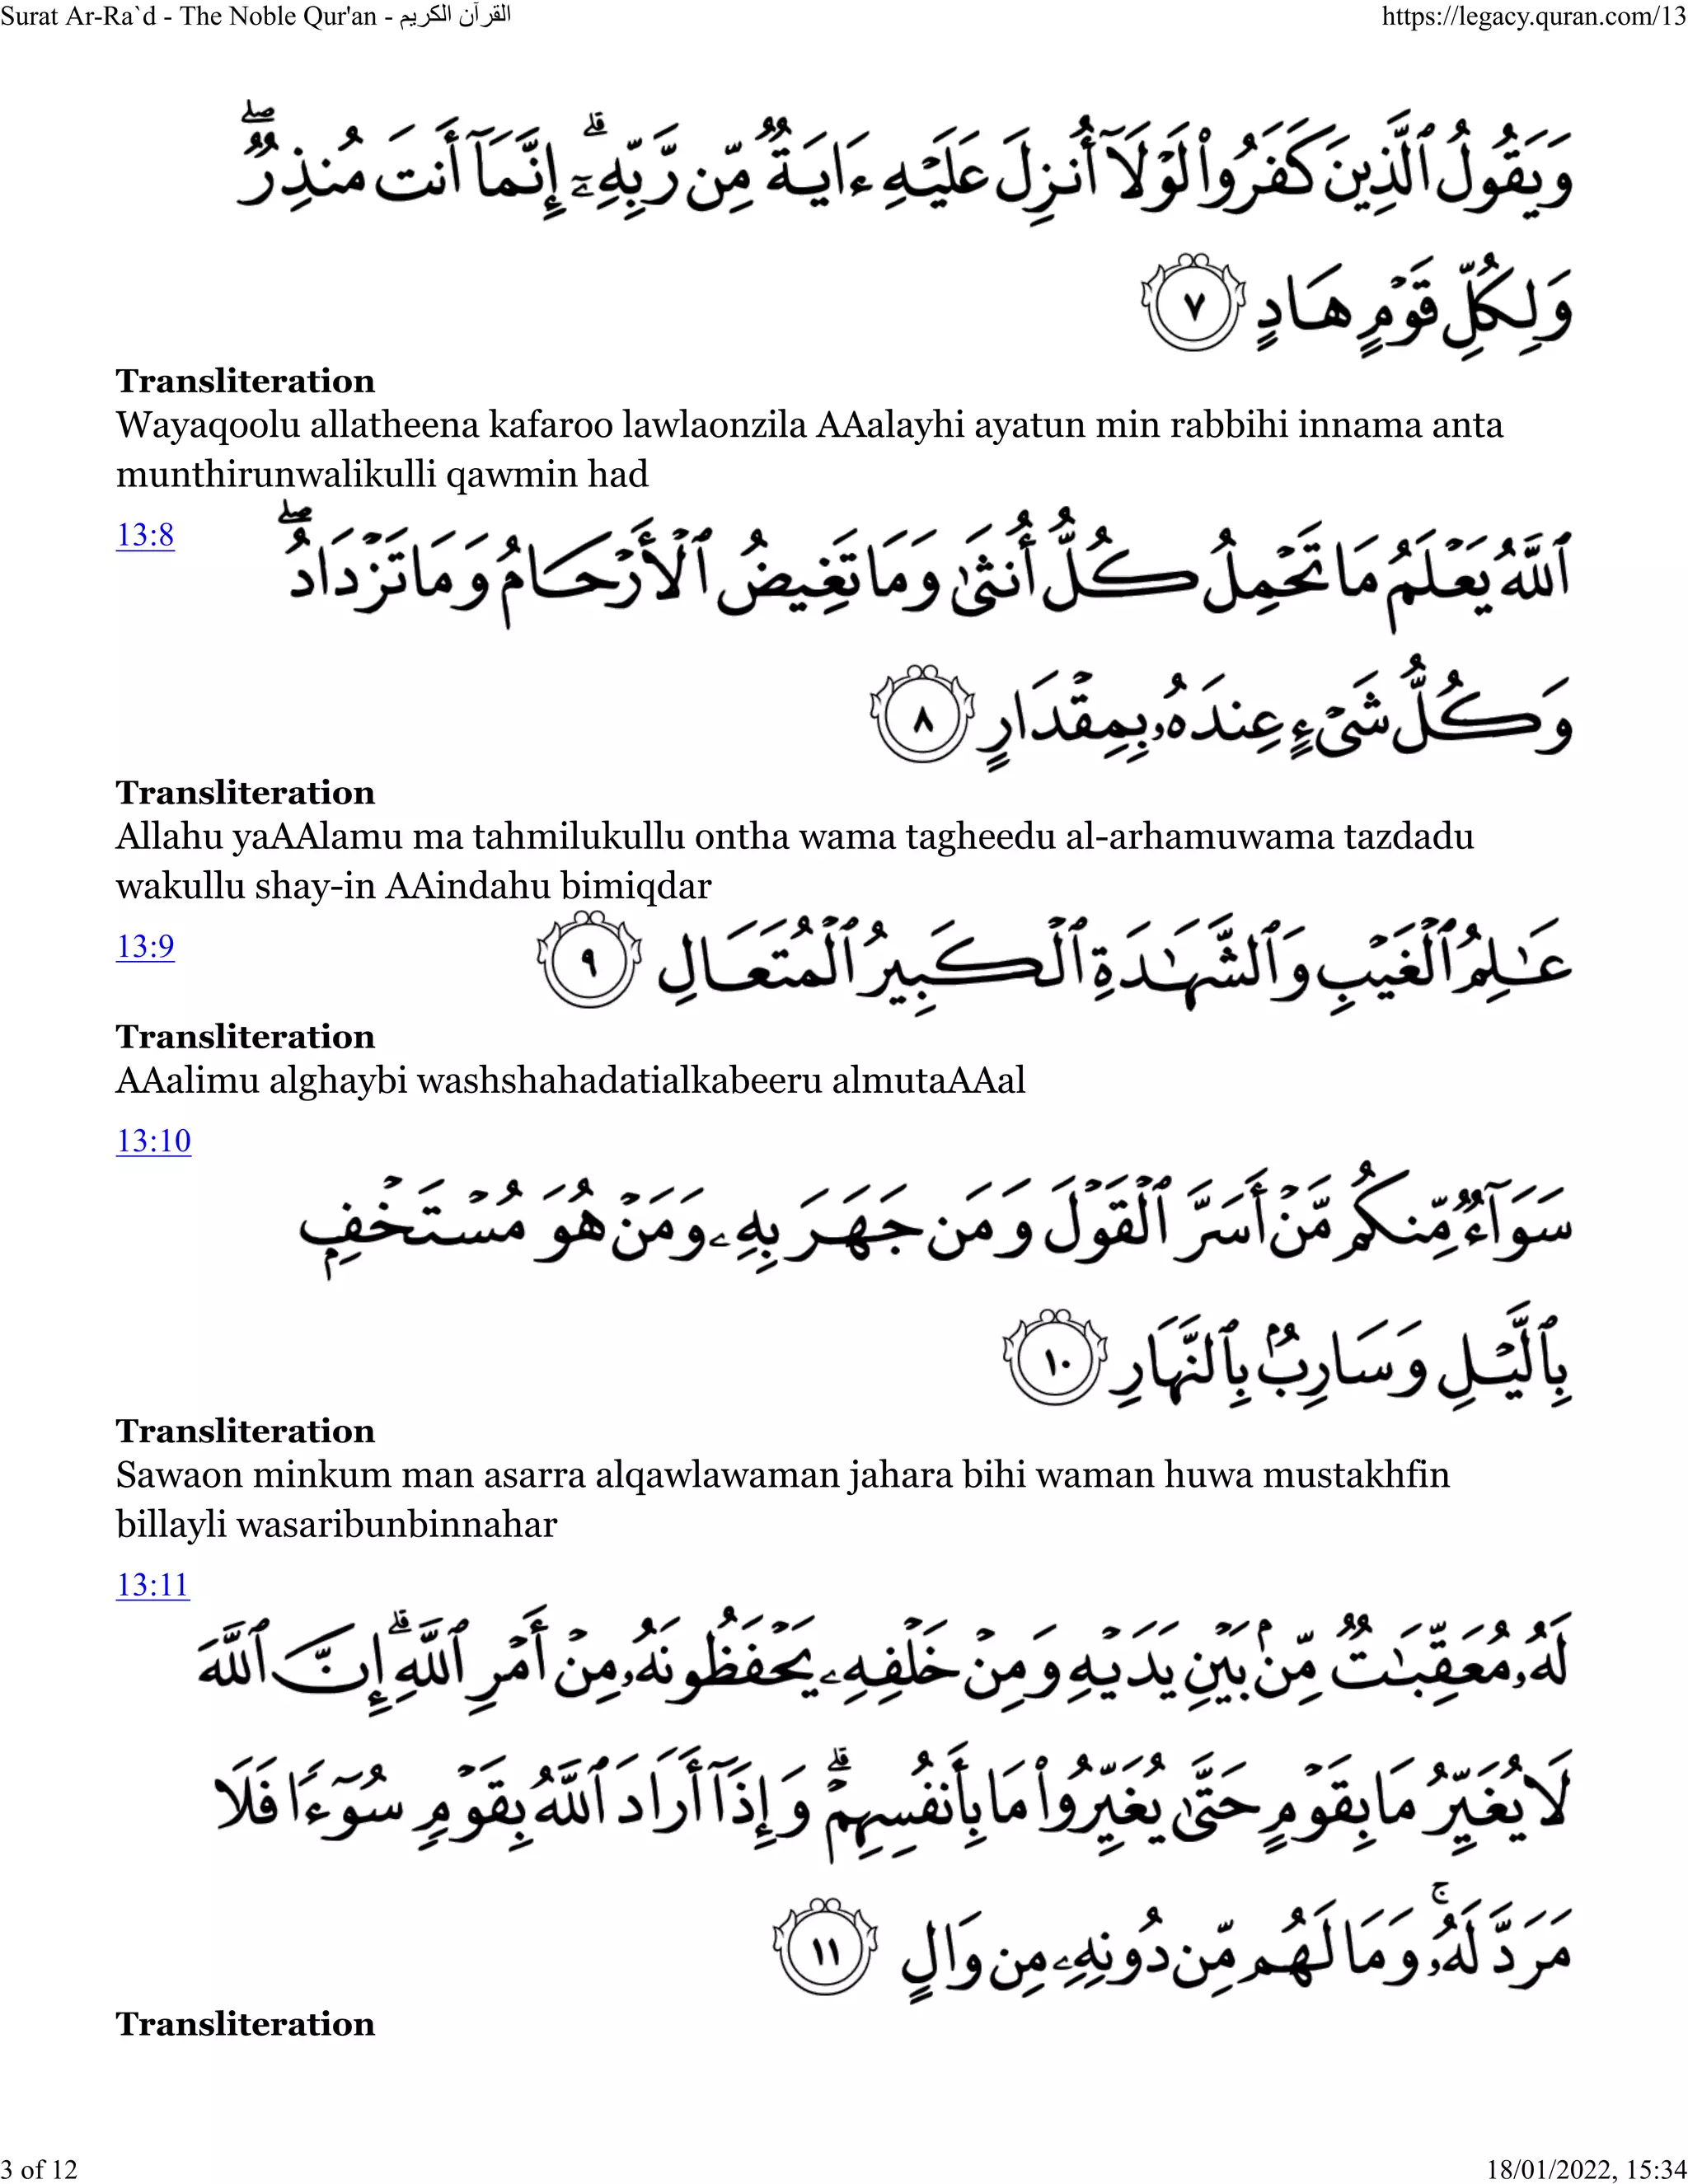 Surat Ar-Ra`d - The Noble Qur'an - القرآن الكريم
https://legacy.quran.com/13
وَيَقُولُ ٱلَّذِينَ كَفَرُوا۟ لَوْلَآ أُنزِلَ عَلَيْهِ ءَايَةٌ مِّن رَّبِّهِۦٓ ۗ إِنَّمَآ أَنتَ مُنذِرٌ ۖ
وَلِكُلِّ قَوْمٍ هَادٍ ٧
Transliteration
Wayaqoolu allatheena kafaroo lawlaonzila AAalayhi ayatun min rabbihi innama anta
munthirunwalikulli qawmin had
13:8
ٱللَّهُ يَعْلَمُ مَا تَحْمِلُ كُلُّ أُنثَىٰ وَمَا تَغِيضُ ٱلْأَرْحَامُ وَمَا تَزْدَادُ ۖ
وَكُلُّ شَىْءٍ عِندَهُۥ بِمِقْدَارٍ ٨
Transliteration
Allahu yaAAlamu ma tahmilukullu ontha wama tagheedu al-arhamuwama tazdadu
wakullu shay-in AAindahu bimiqdar
13:9
عَـٰلِمُ ٱلْغَيْبِ وَٱلشَّهَـٰدَةِ ٱلْكَبِيرُ ٱلْمُتَعَالِ ٩
Transliteration
AAalimu alghaybi washshahadatialkabeeru almutaAAal
13:10
سَوَآءٌ مِّنكُم مَّنْ أَسَرَّ ٱلْقَوْلَ وَمَن جَهَرَ بِهِۦ وَمَنْ هُوَ مُسْتَخْفٍۭ
بِٱلَّيْلِ وَسَارِبٌۢ بِٱلنَّهَارِ ١٠
Transliteration
Sawaon minkum man asarra alqawlawaman jahara bihi waman huwa mustakhfin
billayli wasaribunbinnahar
13:11
لَهُۥ مُعَقِّبَـٰتٌ مِّنۢ بَيْنِ يَدَيْهِ وَمِنْ خَلْفِهِۦ يَحْفَظُونَهُۥ مِنْ أَمْرِ ٱللَّهِ ۗ إِنَّ ٱللَّهَ
لَا يُغَيِّرُ مَا بِقَوْمٍ حَتَّىٰ يُغَيِّرُوا۟ مَا بِأَنفُسِهِمْ ۗ وَإِذَآ أَرَادَ ٱللَّهُ بِقَوْمٍ سُوٓءًا فَلَا
مَرَدَّ لَهُۥ ۚ وَمَا لَهُم مِّن دُونِهِۦ مِن وَالٍ ١١
Transliteration
3 of 12
18/01/2022, 15:34